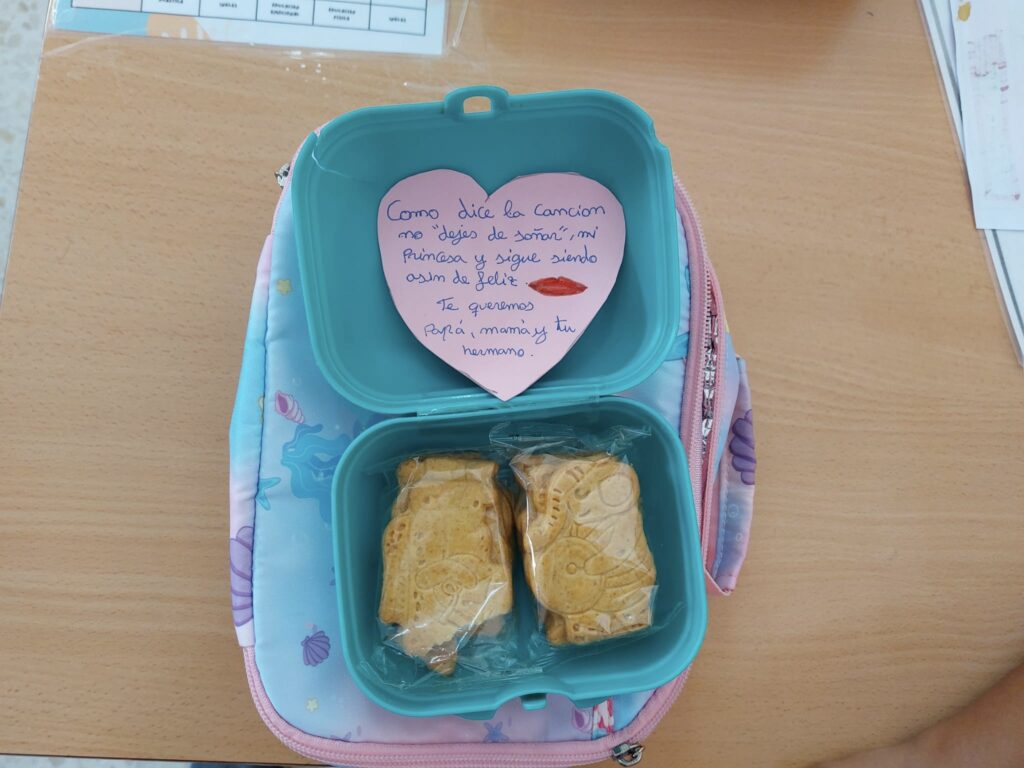 EDUCACIÓN
FÍSICA
Como dice la canción
no "dejes de soñar", mi
Princesa y sigue siendo
asin de feliz
Te queremos
Papá, mamá y tu
hermano.